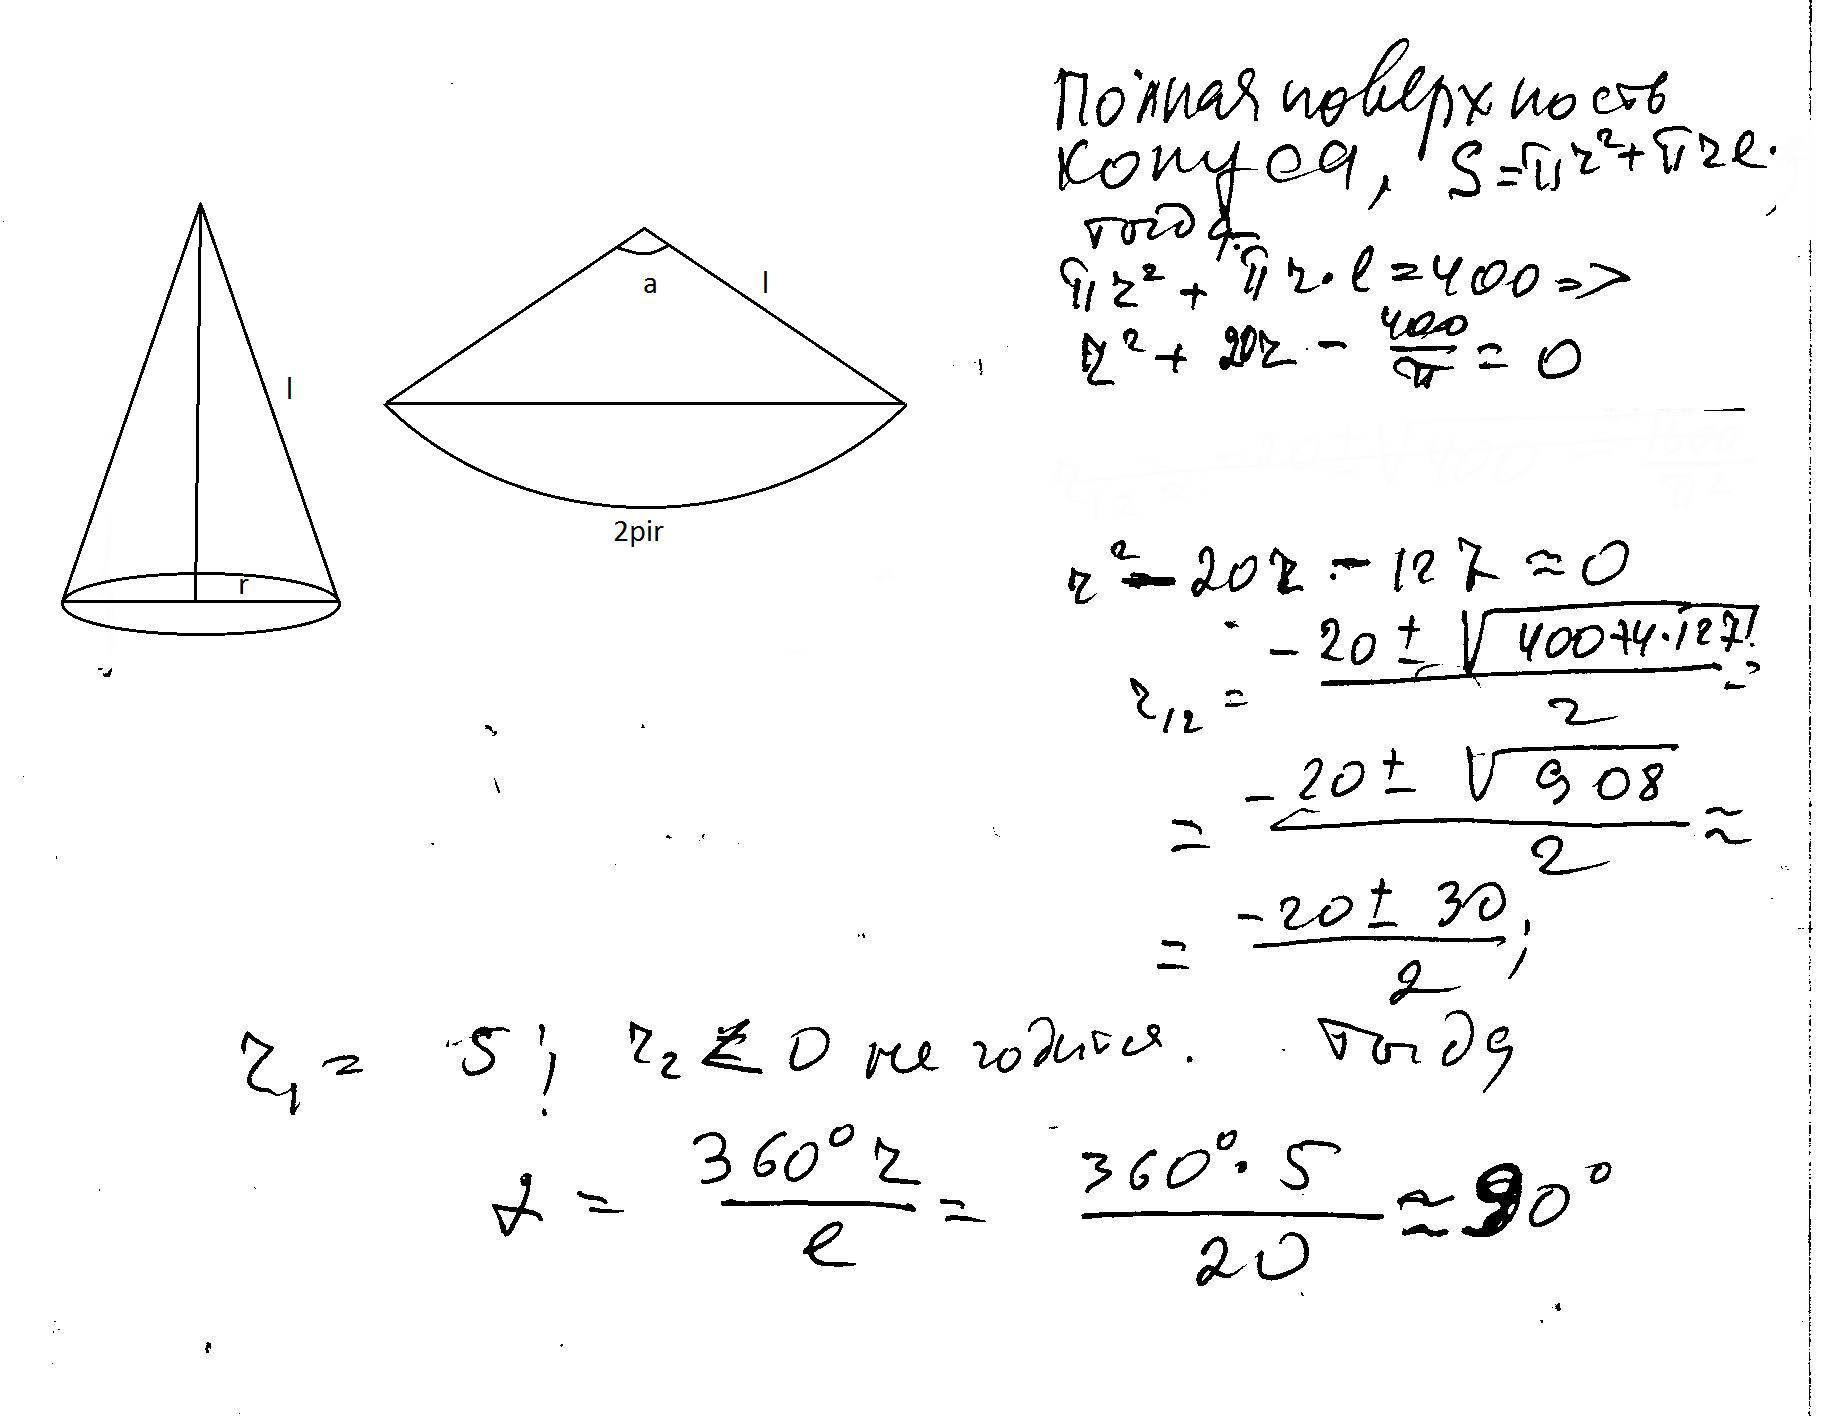 Полная поверхность
конуса, S=πr²+πrl.
тогда
πr² + πr·l = 400 =>
r² + 20r - 400/π = 0
l
a
l
2pir
r
r² - 20r - 127 ≈ 0
r₁₂ = -20 ± √(400+4·127) / 2 =
= -20 ± √908 / 2 ≈
= -20 ± 30 / 2 ;
r₁ = 5; r₂ < 0 не годится. Тогда
α = 360° r / l = 360°·5 / 20 ≈ 90°